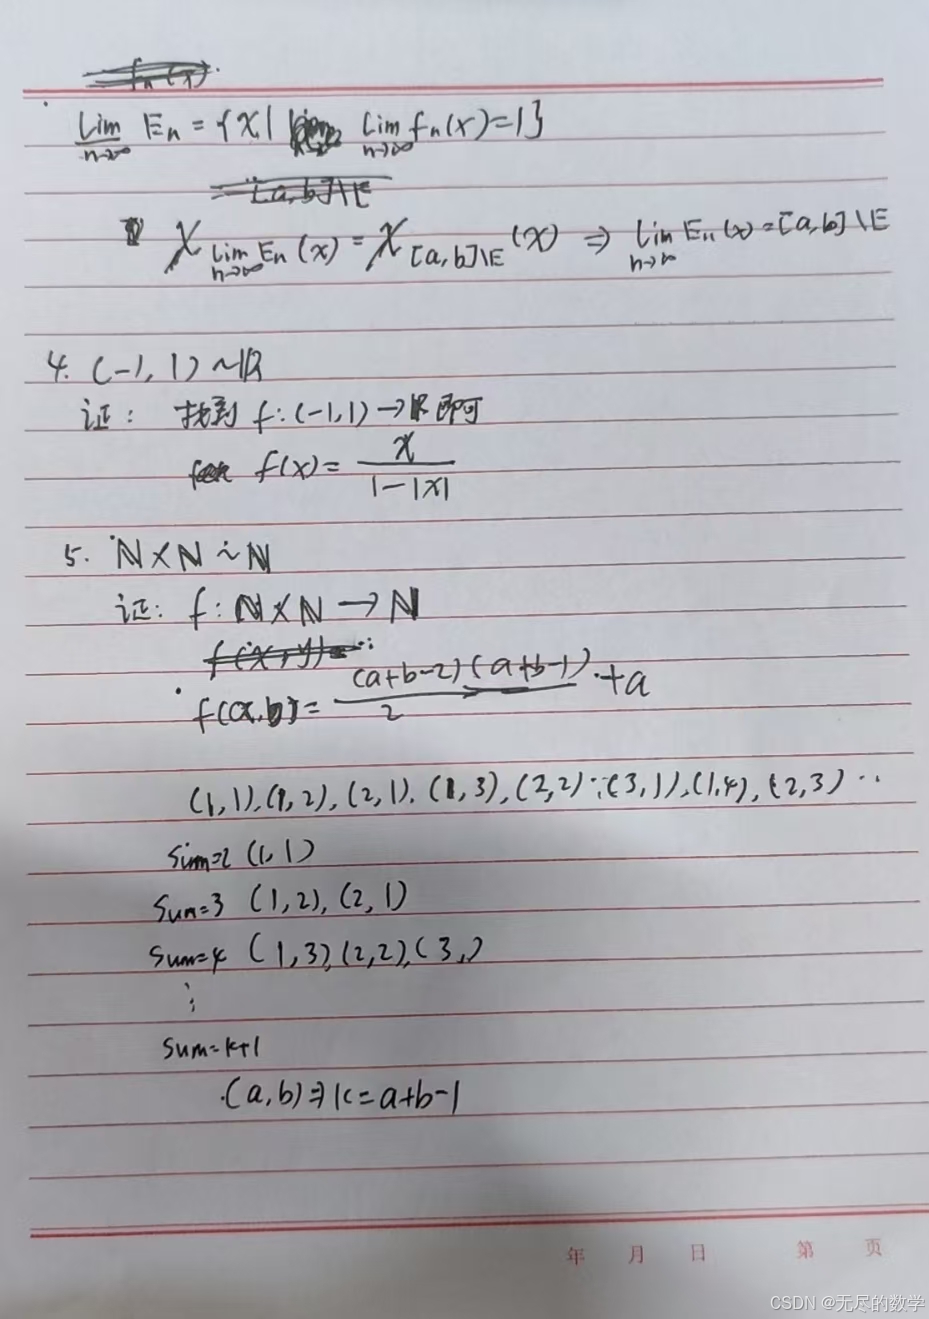 lim n→∞ En = {x| lim n→∞ fn(x)=1}
χ lim n→∞ En (x) = χ [a,b]\E (x) ⇒ lim n→∞ En(x) = [a,b]\E
4. (-1,1) ~ ℝ
证: 找到 f:(-1,1)→ℝ 即可
f(x)= x / 1-|x|
5. ℕ×ℕ ~ ℕ
证: f: ℕ×ℕ → ℕ
f(a,b)= (a+b-2)(a+b-1) / 2 +a
(1,1),(1,2),(2,1),(1,3),(2,2),(3,1),(1,4),(2,3)…
sum=2 (1,1)
sum=3 (1,2),(2,1)
sum=4 (1,3),(2,2),(3,)
⋮
sum=k+1
(a,b)⇒k=a+b-1
年 月 日 第 页
CSDN @无尽的数学